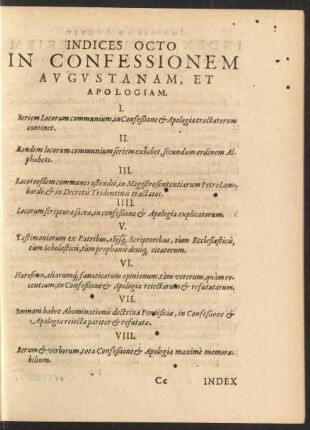 INDICES OCTO
IN CONFESSIONEM
AVGVSTANAM, ET
APOLOGIAM.
I.
Seriem locorum communium, in Confessione & Apologia tractatorum
continet.
II.
Eandem locorum communium seriem exhibet, secundum ordinem Al-
phabeti.
III.
Locos eosdem communes ostendit, in Magistro sententiarum Petro Lom-
bardo, & in Decretis Tridentinis tractatos.
IIII.
Locorum scripturæ sacræ, in confessione & Apologia explicatorum.
V.
Testimoniorum ex Patribus, alijsq́; Scriptoribus, tùm Ecclesiasticis,
tùm Scholasticis, tùm prophanis deniq́; citatorum.
VI.
Hæreseon, aliarumq́; fanaticarum opinionum, tàm veterum, quàm re-
centium, in Confessione & Apologia reiectarum & refutatarum.
VII.
Summam habet Abominationis doctrinæ Pontificiæ, in Confessione &
Apologia reiectæ pariter & refutatæ.
VIII.
Rerum & verborum, tota Confessione & Apologia maximè memora-
bilium.
Cc INDEX